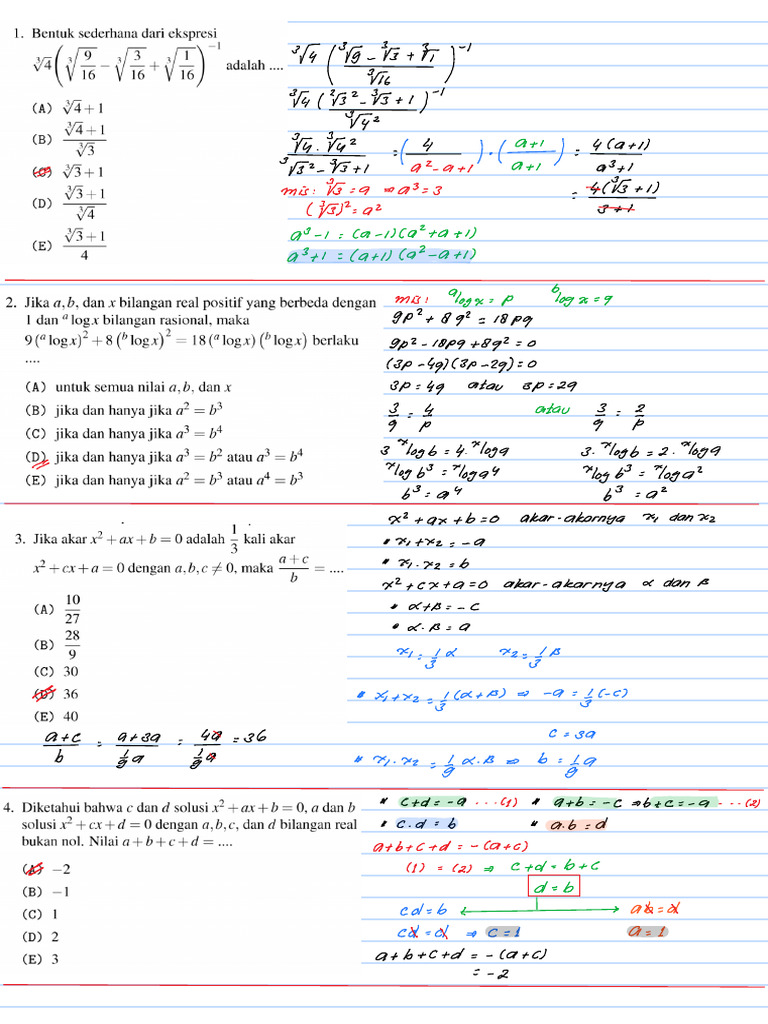 1. Bentuk sederhana dari ekspresi
∛4(∛(9/16) − ∛(3/16) + ∛(1/16))⁻¹ adalah ....
(A) ∛4 + 1
(B) (∛4 + 1)/∛3
(C) ∛3 + 1
(D) (∛3 + 1)/∛4
(E) (∛3 + 1)/4
∛4 ((∛9 − ∛3 + ∛1)/∛16)⁻¹
∛4 ((∛3² − ∛3 + 1)/∛4²)⁻¹
(∛4 . ∛4²)/(∛3² − ∛3 + 1) = (4/(a² − a + 1)) . ((a+1)/(a+1)) = 4(a+1)/(a³+1)
mis: ∛3 = a ⇒ a³ = 3
= 4(∛3 + 1)/(3+1)
(∛3)² = a²
a³ − 1 = (a−1)(a² + a + 1)
a³ + 1 = (a+1)(a² − a + 1)
2. Jika a, b, dan x bilangan real positif yang berbeda dengan
1 dan ᵃlog x bilangan rasional, maka
9(ᵃlog x)² + 8(ᵇlog x)² = 18(ᵃlog x)(ᵇlog x) berlaku
....
(A) untuk semua nilai a, b, dan x
(B) jika dan hanya jika a² = b³
(C) jika dan hanya jika a³ = b⁴
(D) jika dan hanya jika a³ = b² atau a³ = b⁴
(E) jika dan hanya jika a² = b³ atau a⁴ = b³
mis: ᵃlog x = p ᵇlog x = q
9p² + 8q² = 18pq
9p² − 18pq + 8q² = 0
(3p − 4q)(3p − 2q) = 0
3p = 4q atau 3p = 2q
3/q = 4/p atau 3/q = 2/p
3 ˣlog b = 4 . ˣlog a 3 . ˣlog b = 2 . ˣlog a
ˣlog b³ = ˣlog a⁴ ˣlog b³ = ˣlog a²
b³ = a⁴ b³ = a²
3. Jika akar x² + ax + b = 0 adalah 1/3 kali akar
x² + cx + a = 0 dengan a, b, c ≠ 0, maka (a + c)/b = ....
(A) 10/27
(B) 28/9
(C) 30
(D) 36
(E) 40
(a+c)/b = (a+3a)/(1/9 a) = 4a/(1/9 a) = 36
x² + ax + b = 0 akar-akarnya x₁ dan x₂
* x₁ + x₂ = −a
* x₁ . x₂ = b
x² + cx + a = 0 akar-akarnya α dan β
* α + β = −c
* α . β = a
x₁ = 1/3 α x₂ = 1/3 β
* x₁ + x₂ = 1/3 (α + β) ⇒ −a = 1/3 (−c)
c = 3a
* x₁ . x₂ = 1/9 α . β ⇒ b = 1/9 a
4. Diketahui bahwa c dan d solusi x² + ax + b = 0, a dan b
solusi x² + cx + d = 0 dengan a, b, c, dan d bilangan real
bukan nol. Nilai a + b + c + d = ....
(A) −2
(B) −1
(C) 1
(D) 2
(E) 3
* c + d = −a ... (1) * a + b = −c ⇒ b + c = −a ... (2)
* c . d = b * a . b = d
a + b + c + d = −(a + c)
(1) = (2) ⇒ c + d = b + c
d = b
cd = b ab = d
cd = d ⇒ c = 1 a = 1
a + b + c + d = −(a + c)
= −2